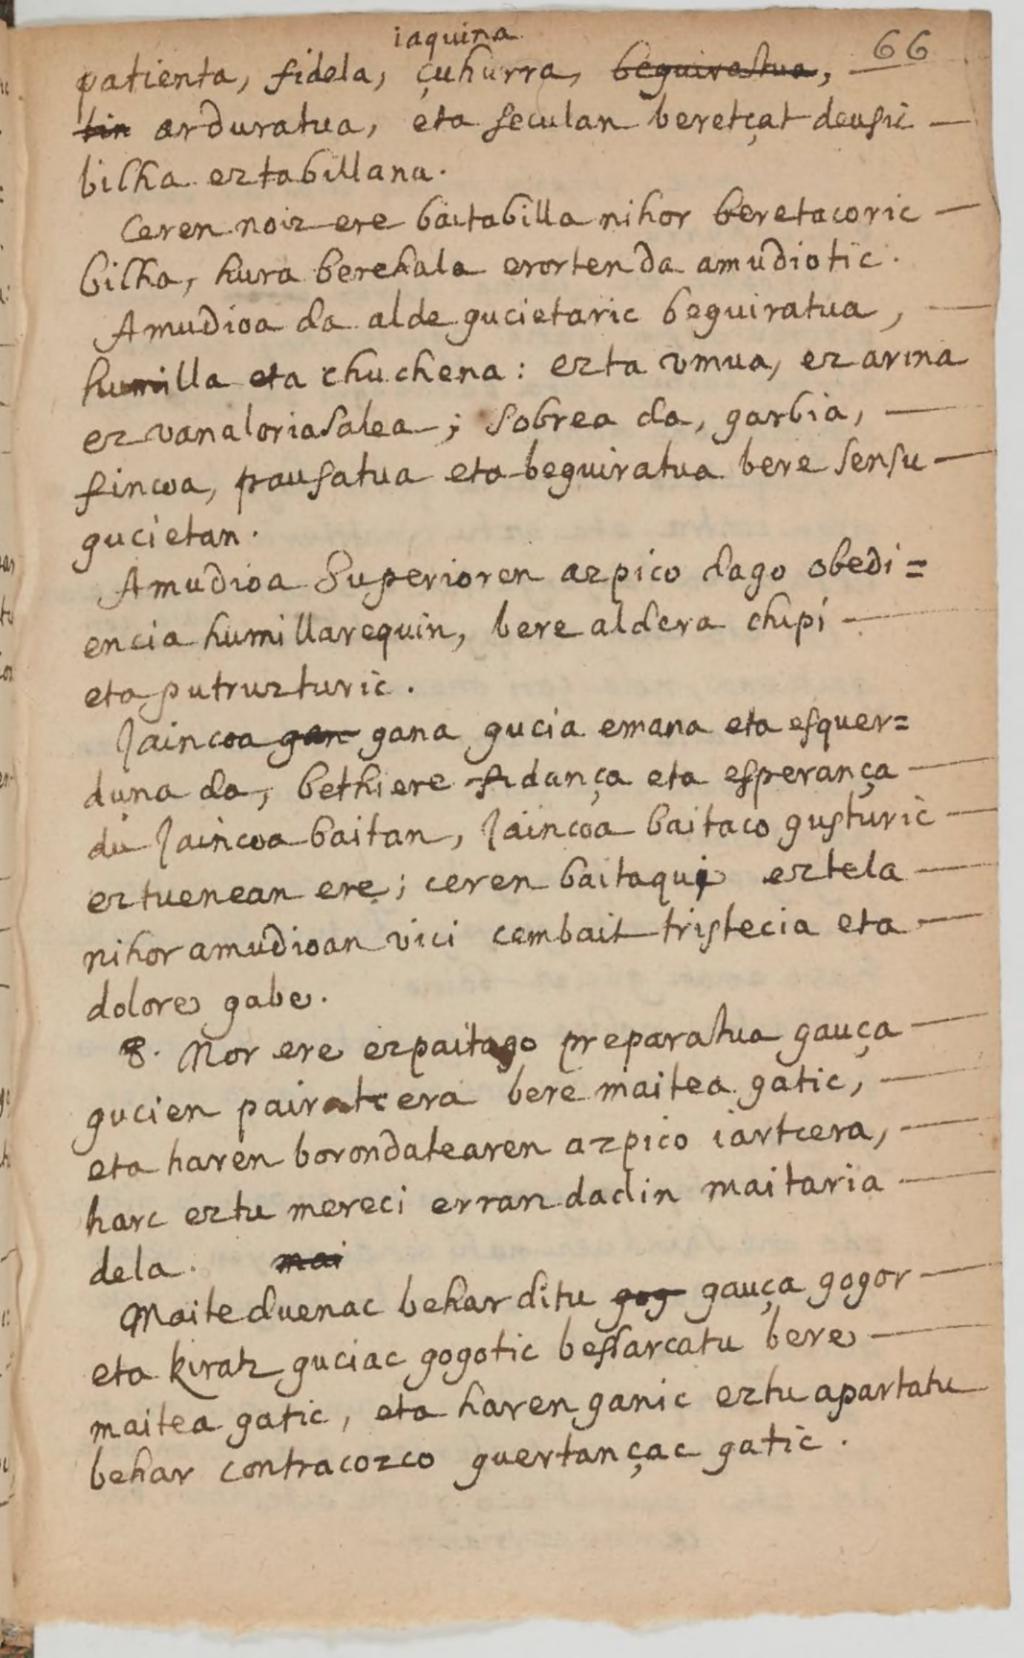 iaquina
66
patienta, fidela, çuhurra, beguirastua,
bin arduratua, eta seculan beretçat deusic
bilha eztabillana.
Ceren noiz ere baitabilla nihor beretacoric
bilha, hura berehala erortenda amudiotic.
Amudioa da alde gucietaric beguiratua,
humilla eta chuchena: ezta vmua, ez arina
ez vanaloriasalea; sobrea da, garbia,
fincoa, pausatua eta beguiratua bere sensu
gucietan.
Amudioa Superioren azpico dago obedi=
encia humillarequin, bere aldera chipi
eta putruzturic.
Jaincoa gan gana gucia emana eta esquer=
duna da, bethiere fidança eta esperança
du Jaincoa baitan, Jaincoa baitaco gusturic
eztuenean ere; ceren baitaqui eztela
nihor amudioan vici cembait tristecia eta
dolore gabe.
8. Nor ere ezpaitago preparatua gauça
gucien pairatcera bere maitea gatic,
eta haren borondatearen azpico iartcera,
harc eztu mereci erran dadin maitaria
dela. mai
Maite duenac behar ditu gog gauça gogor
eta kiratz guciac gogotic bessarcatu bere
maitea gatic, eta haren ganic eztu apartatu
behar contracozco guertançac gatic.